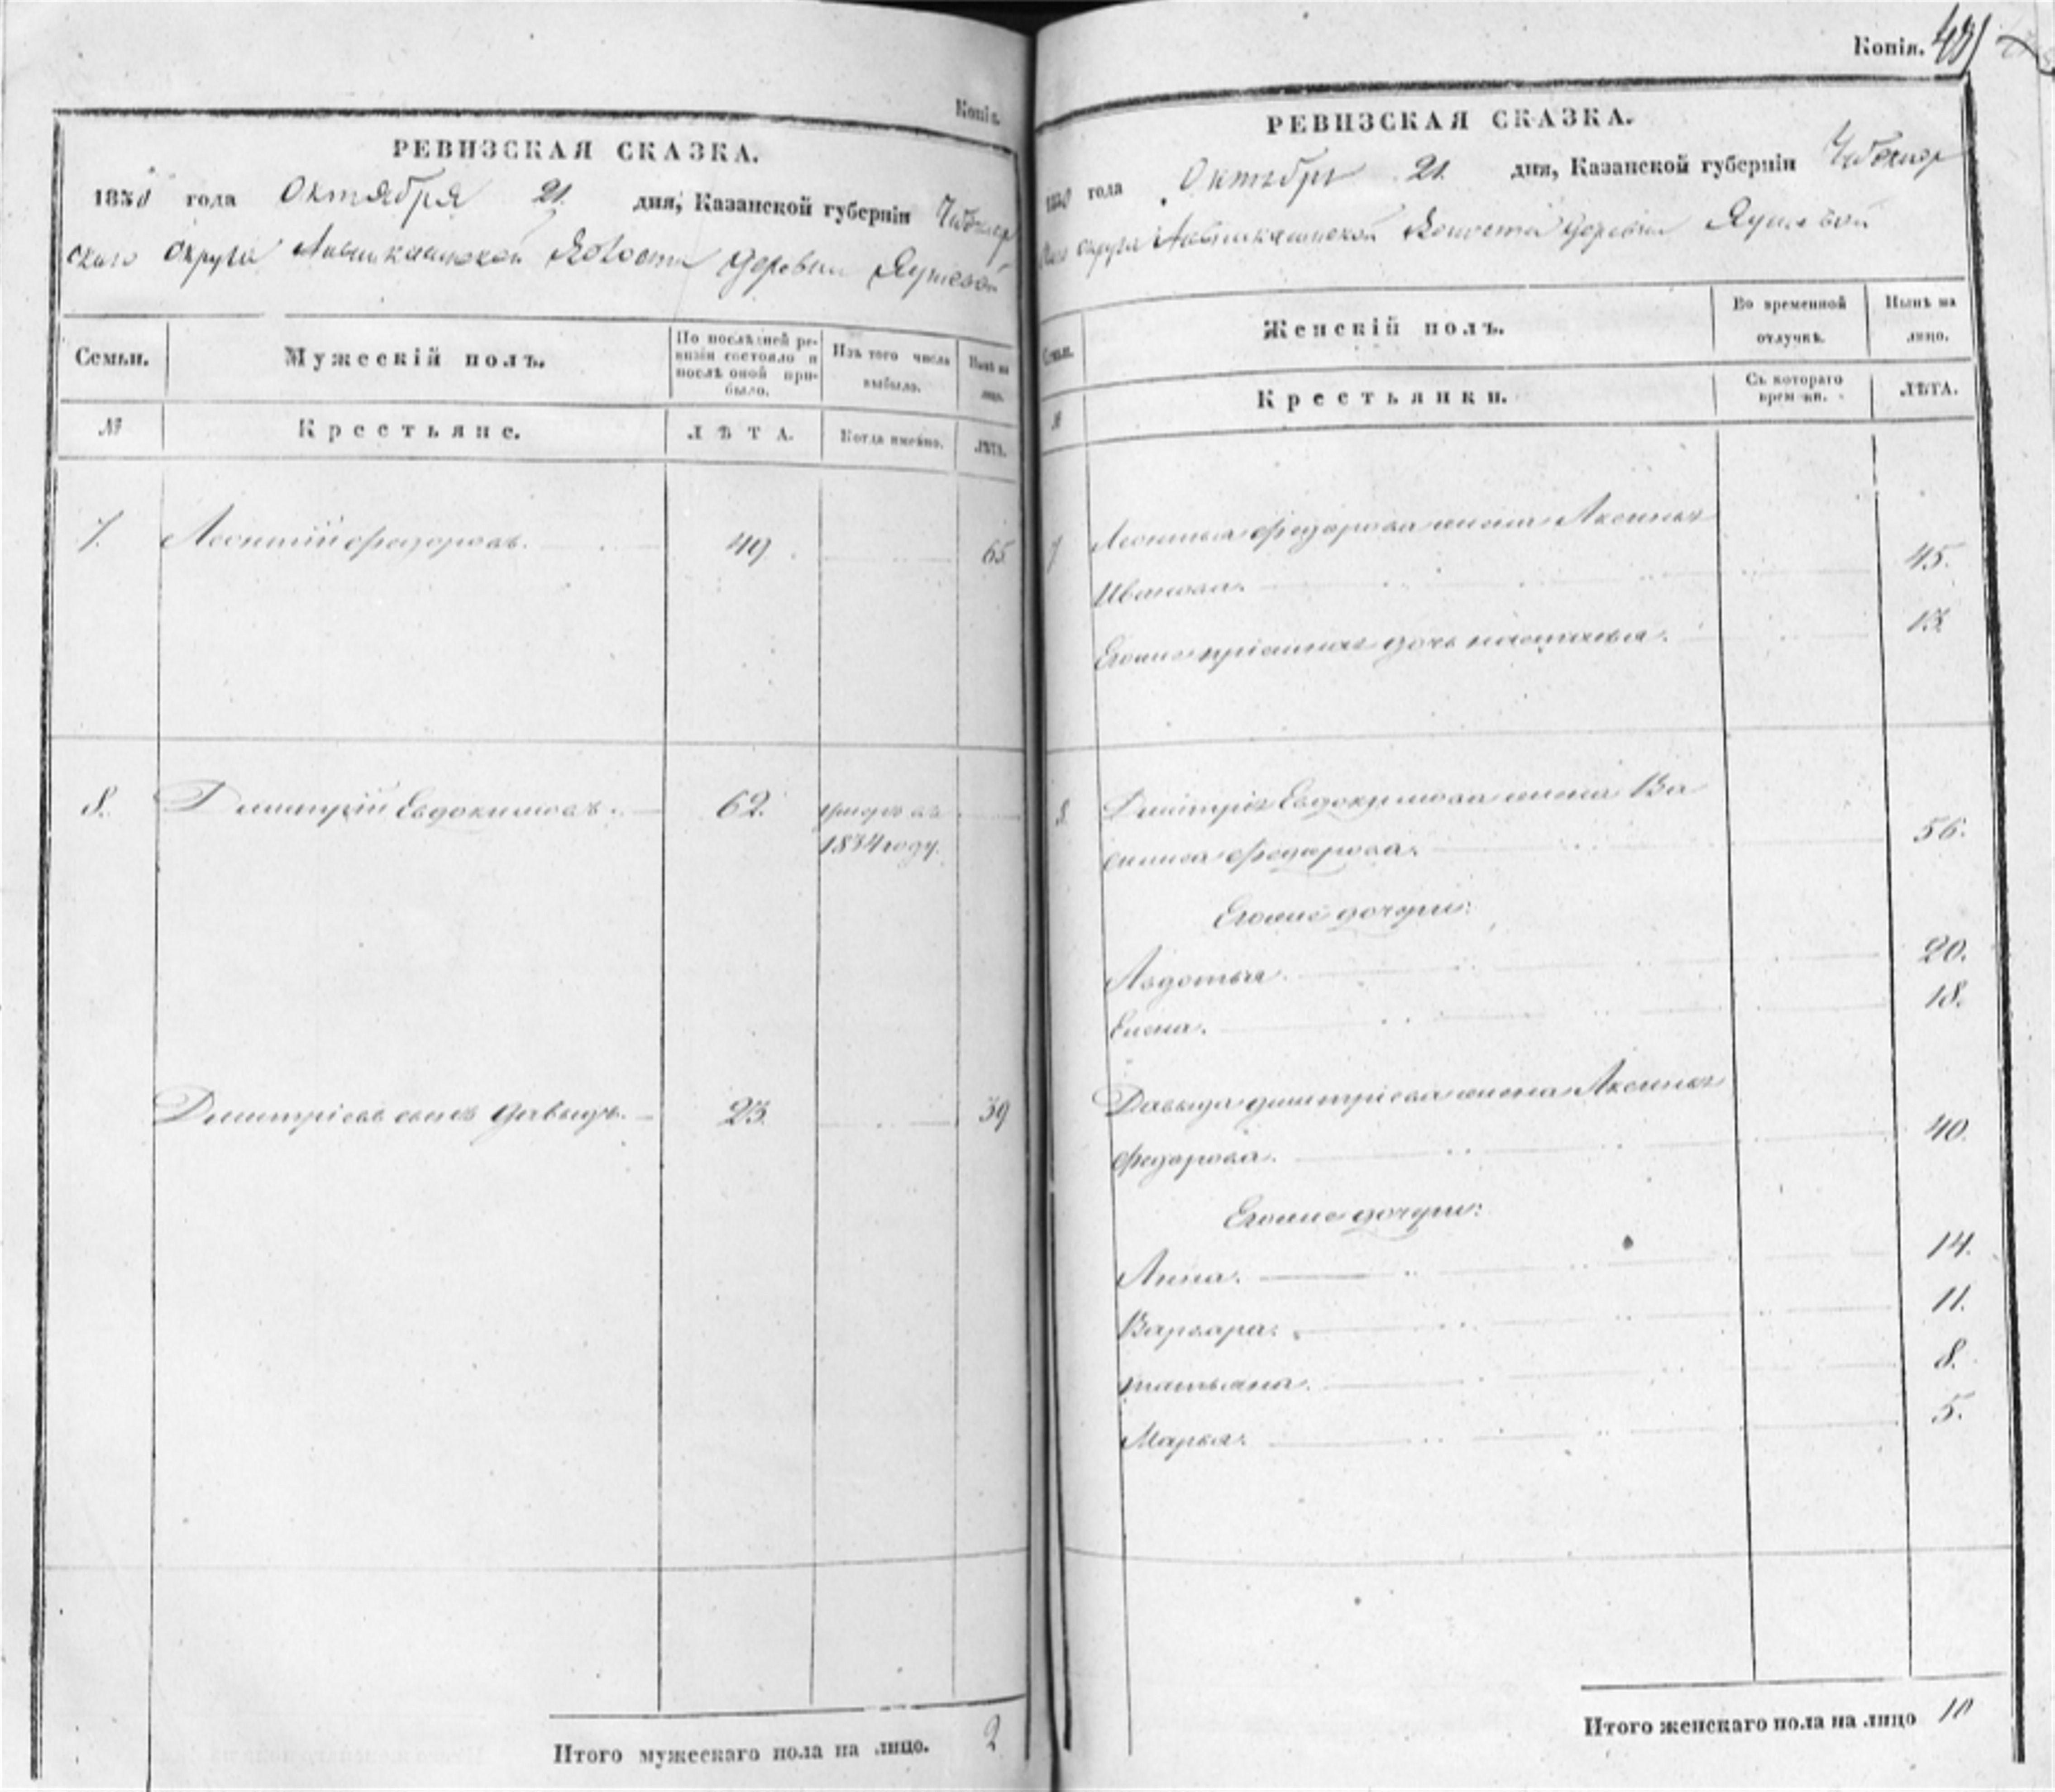 Копія.
РЕВИЗСКАЯ СКАЗКА.
1850 года Октября 21 дня, Казанской губерніи Чебоксар
скаго Округа Волости деревни
Семьи.
Мужескій полъ.
По послѣдней ре-
визіи состояло и
послѣ оной при-
было.
Изъ того числа
выбыло.
Нынѣ на
лицо.
№
Крестьяне.
ЛѢТА.
Когда имянно.
ЛѢТА.
7. Леонтій Федоровъ. 49 65
8. Дмитрій Евдокимовъ. 62. умеръ въ
1834 году.
Дмитріевъ сынъ Давыдъ. 23. 39
Итого мужескаго пола на лицо. 2
Копія. 431
РЕВИЗСКАЯ СКАЗКА.
1850 года Октября 21 дня, Казанской губерніи Чебоксар
скаго Округа Волости деревни
Семьи.
Женскій полъ.
Во временной
отлучкѣ.
Нынѣ на
лицо.
№
Крестьянки.
Съ котораго
времяни.
ЛѢТА.
7 Леонтья Федорова жена Аксинья
Иванова. 45.
Егоже пріемная дочь Настасья. 13.
8. Дмитрія Евдокимова жена Ва
силиса Федорова. 56.
Егоже дочери:
Авдотья. 20.
Елена. 18.
Давыда Дмитріева жена Аксинья
Федорова. 40.
Егоже дочери:
Анна. 14.
Варвара. 11.
Татьяна. 8.
Марья. 5.
Итого женскаго пола на лицо 10